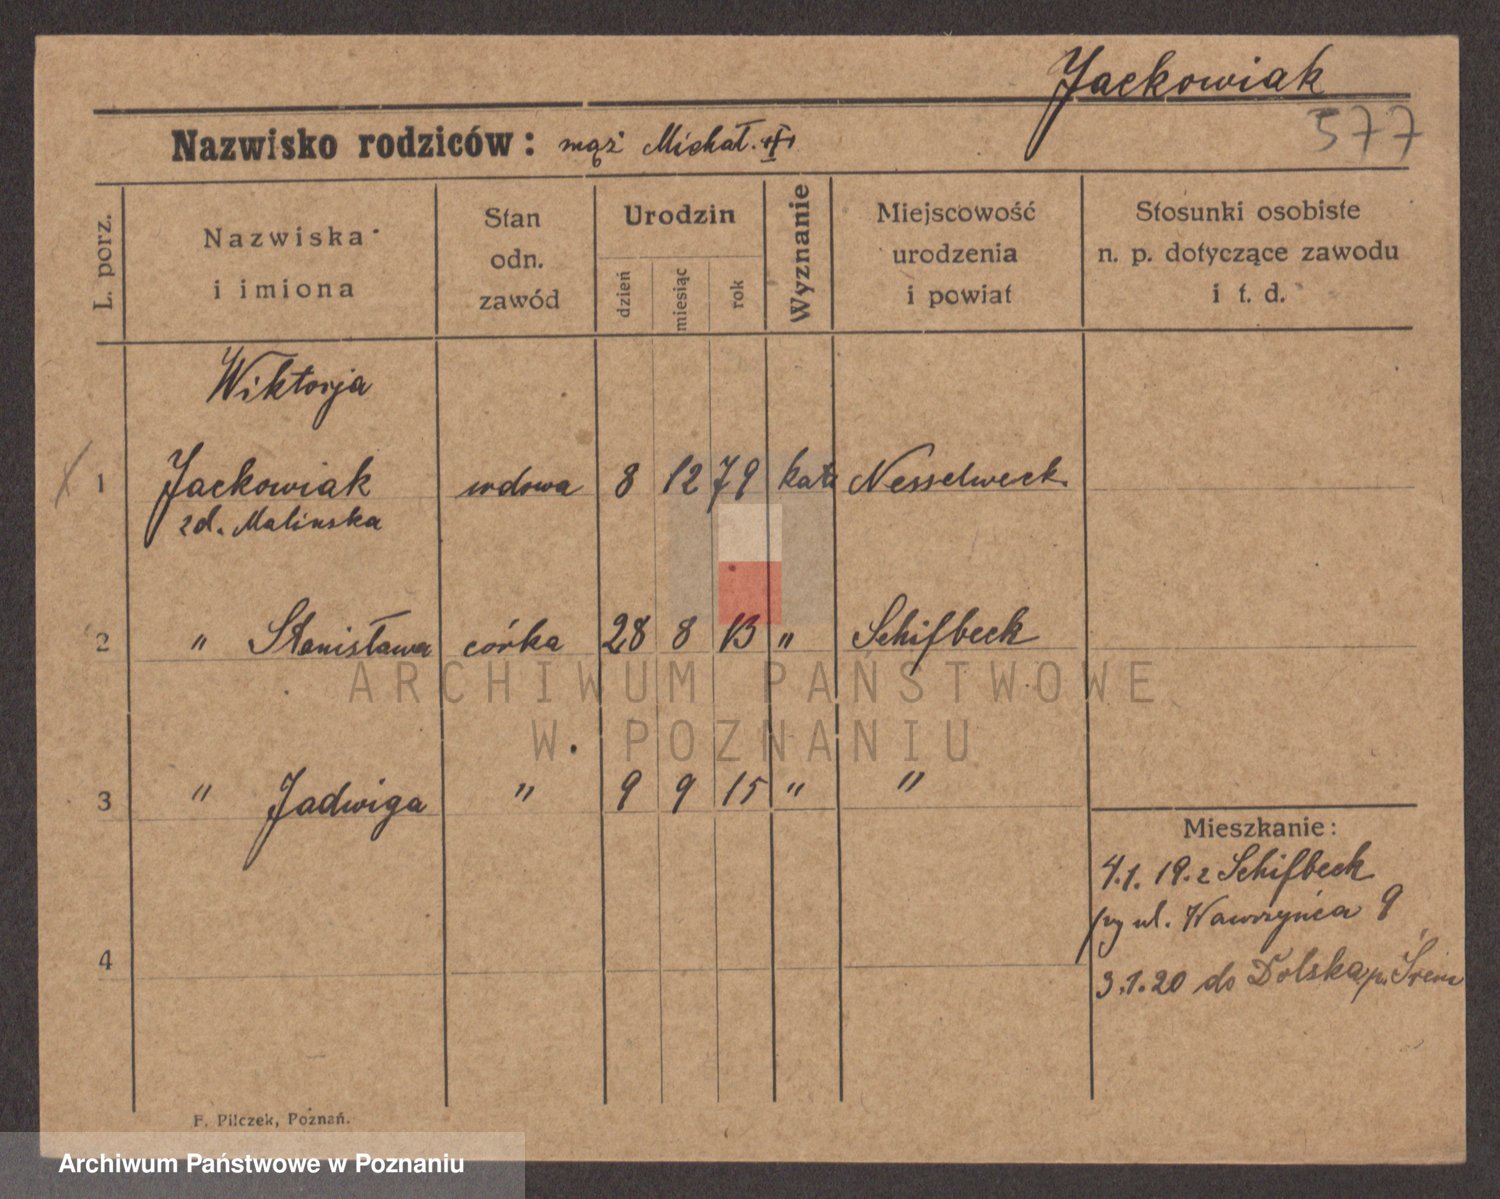 Jackowiak
577
Nazwisko rodziców: mąż Michał
L. porz.
Nazwiska
i imiona
Stan
odn.
zawód
Urodzin
dzień
miesiąc
rok
Wyznanie
Miejscowość
urodzenia
i powiat
Stosunki osobiste
n. p. dotyczące zawodu
i t. d.
Wiktorja
1 Jackowiak wdowa 8 12 79 kat. Nesselweck
zd. Malinska
2 " Stanisława córka 28 8 13 " Schifbeck
3 " Jadwiga " 9 9 15 " "
Mieszkanie:
4.1.19. z Schifbeck
ul. Wawrzyńca 9
4
3.1.20 do Dolska p. Śrem
F. Pilczek, Poznań.
ARCHIWUM PAŃSTWOWE
W POZNANIU
Archiwum Państwowe w Poznaniu